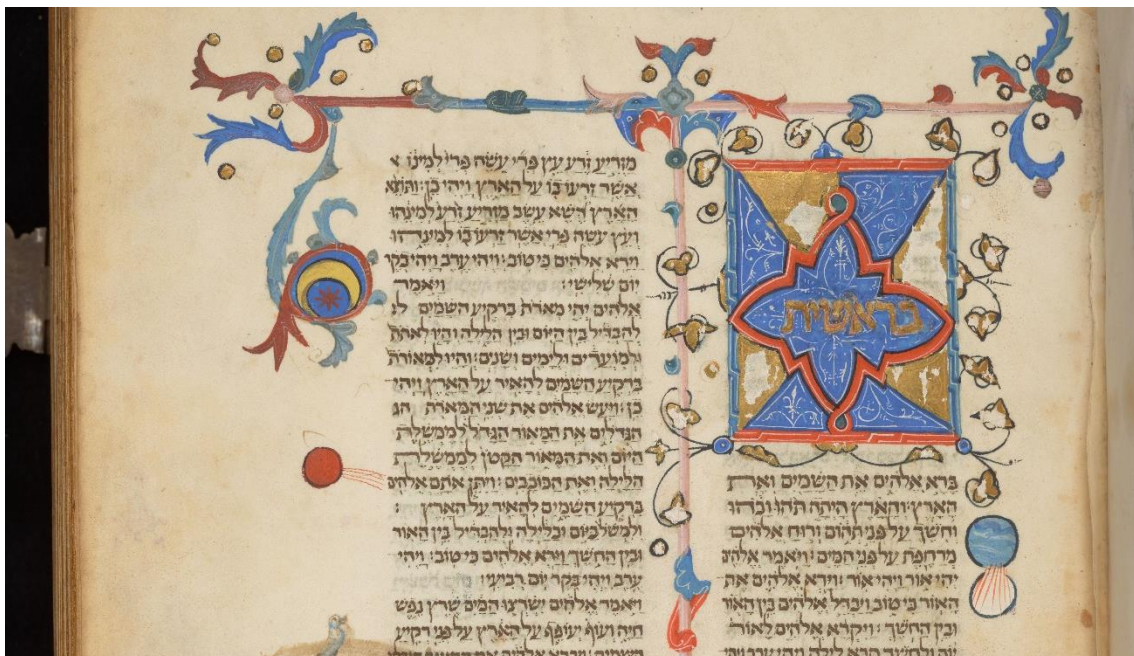 בראשית
ברא אלהים את השמים ואת
הארץ׃ והארץ היתה תהו ובהו
וחשך על פני תהום ורוח אלהים
מרחפת על פני המים׃ ויאמר אלהים
יהי אור ויהי אור׃ וירא אלהים את
האור כי טוב ויבדל אלהים בין האור
ובין החשך׃ ויקרא אלהים לאור
יום ולחשך קרא לילה ויהי ערב ויהי
מזריע זרע עץ פרי עשה פרי למינו
אשר זרעו בו על הארץ ויהי כן׃ ותוצא
הארץ דשא עשב מזריע זרע למינהו
ועץ עשה פרי אשר זרעו בו למינהו
וירא אלהים כי טוב׃ ויהי ערב ויהי בקר
יום שלישי׃ ויאמר
אלהים יהי מארת ברקיע השמים
להבדיל בין היום ובין הלילה והיו לאתת
ולמועדים ולימים ושנים׃ והיו למאורת
ברקיע השמים להאיר על הארץ ויהי
כן׃ ויעש אלהים את שני המארת
הגדלים את המאור הגדל לממשלת
היום ואת המאור הקטן לממשלת
הלילה ואת הכוכבים׃ ויתן אתם אלהים
ברקיע השמים להאיר על הארץ׃
ולמשל ביום ובלילה ולהבדיל בין האור
ובין החשך וירא אלהים כי טוב׃ ויהי
ערב ויהי בקר יום רביעי׃
ויאמר אלהים ישרצו המים שרץ נפש
חיה ועוף יעופף על הארץ על פני רקיע